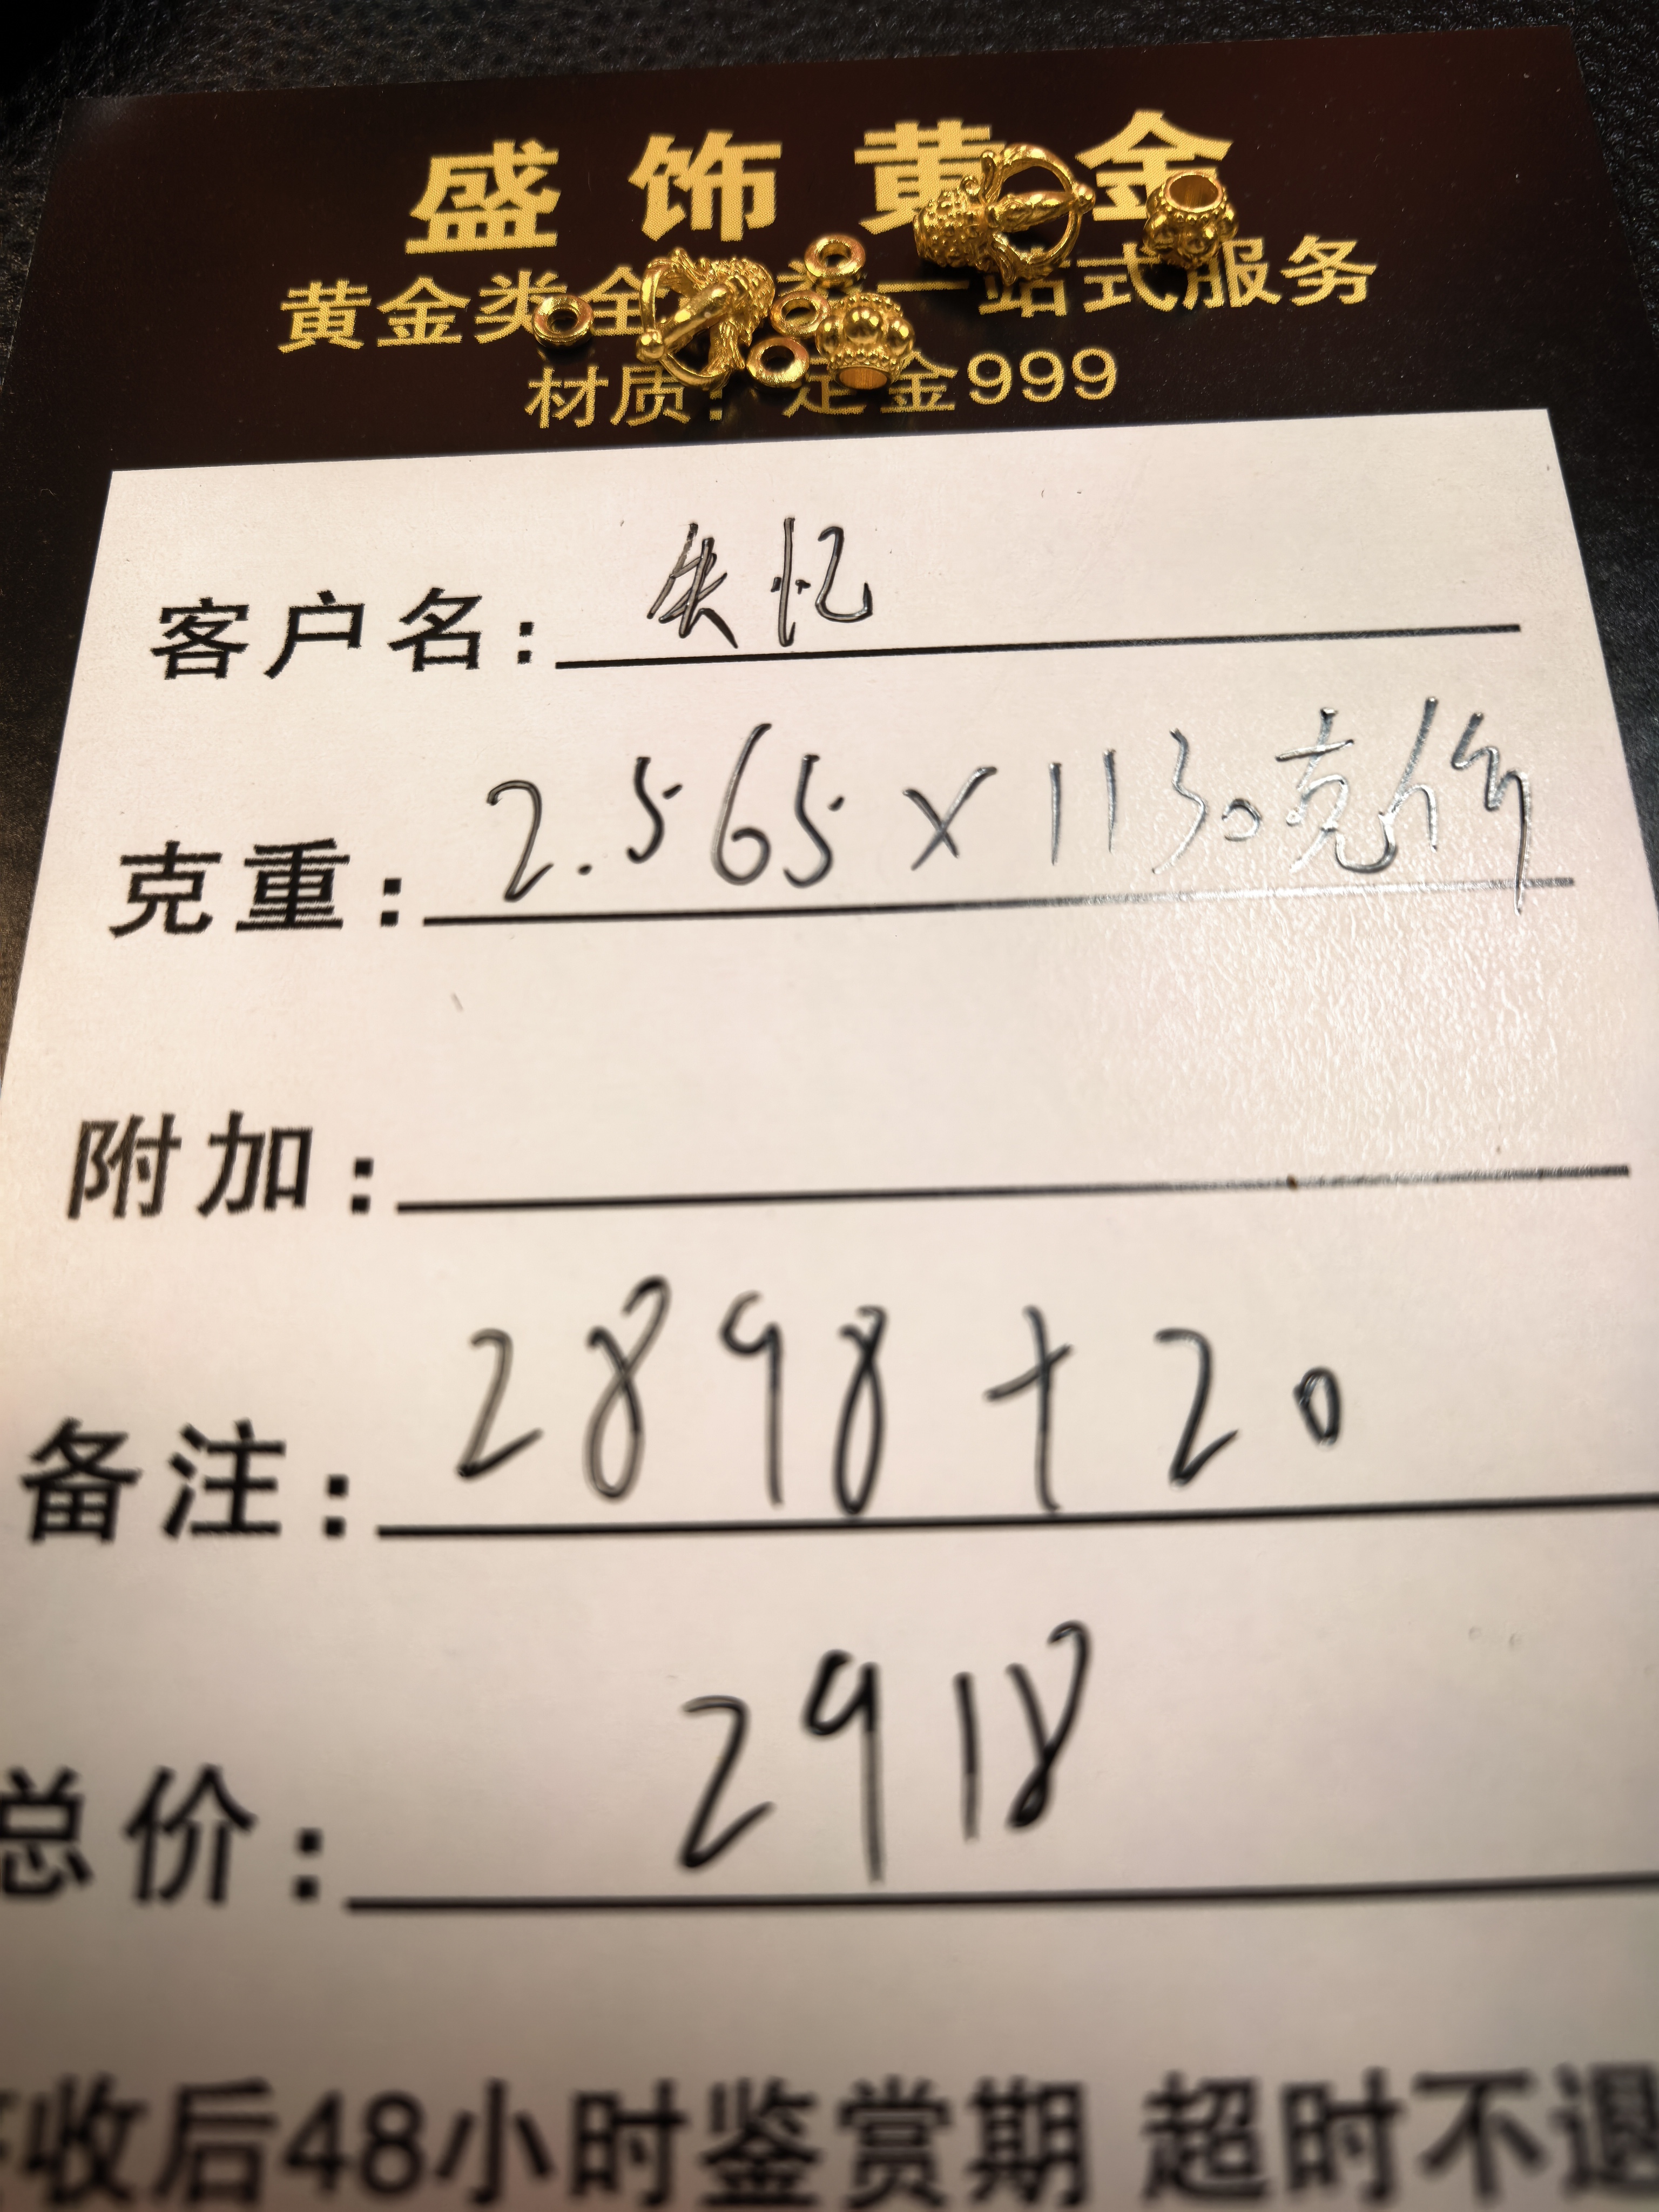 盛饰黄金
黄金类全 一站式服务
材质：足金999
客户名：失忆
克重：2.565×1130克价
附加：
备注：2898+20
总价：2918
收后48小时鉴赏期 超时不退